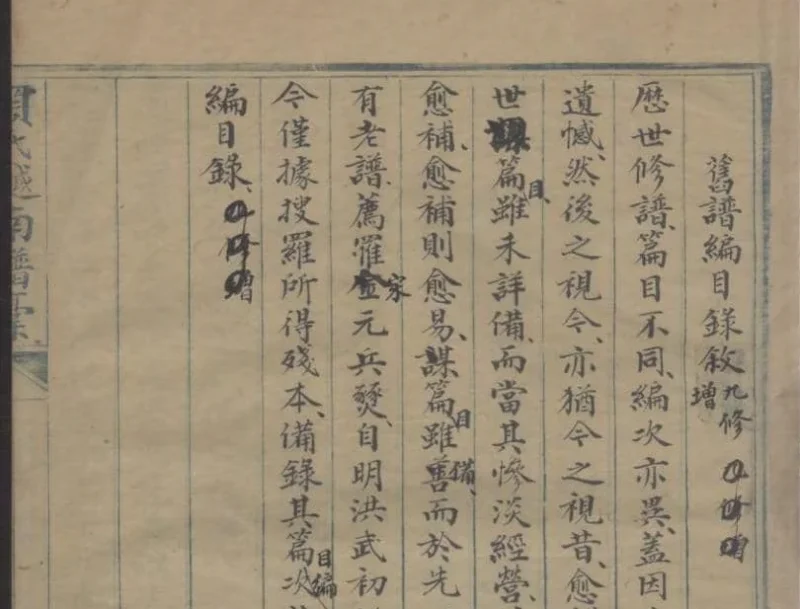 舊譜編目錄敘 九修增
歷世修譜、篇目不同、編次亦異、蓋因
遺憾、然後之視今、亦猶今之視昔、愈
世謀篇目、雖未詳備、而當其慘淡經營、
愈補、愈補則愈易、謀篇目雖善備、而於先
有老譜、薦罹宋元兵燹、自明洪武初
今僅據搜羅所得殘本、備錄其篇次目編
編目錄、增
氏越南譜